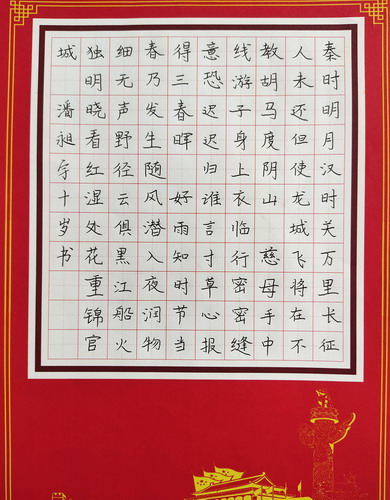 秦时明月汉时关万里长征
人未还但使龙城飞将在不
教胡马度阴山 慈母手中
线游子身上衣临行密密缝
意恐迟迟归谁言寸草心报
得三春晖 好雨知时节当
春乃发生随风潜入夜润物
细无声野径云俱黑江船火
独明晓看红湿处花重锦官
城 潘昶宇十岁书